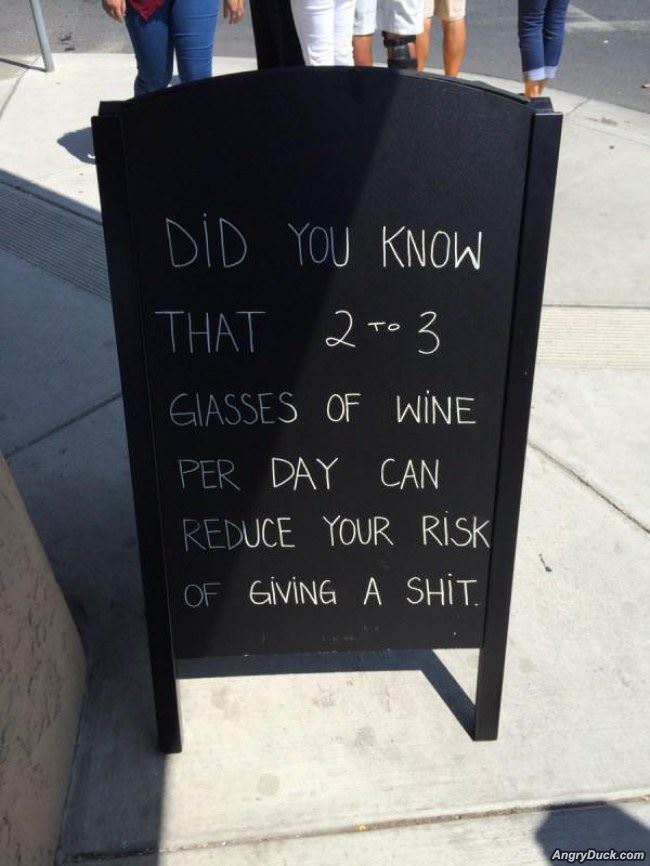 DiD YOU KNOW
THAT 2 TO 3
GlASSES OF WiNE
PER DAY CAN
REDUCE YOUR RiSK
OF GiViNG A SHiT.
AngryDuck.com